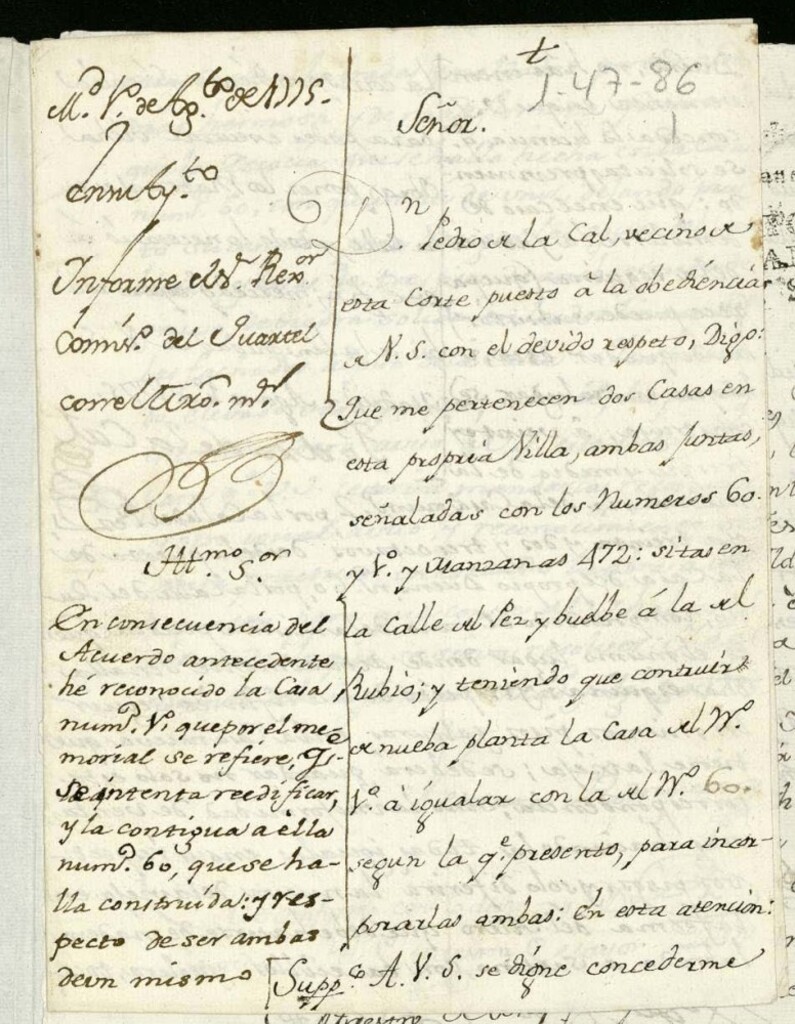 M.d 1.o de Ag.to de 1775.
en su Ay.to
Informe el S.r Rex.or
Comis.o del Quartel
con el Mro. m.r
Ill.mo S.or
En consecuencia del
Acuerdo antecedente
hé reconocido la Casa
num.o 1.o que por el me-
morial se refiere, q.e
se intenta reedificar,
y la contigua a ella
num.o 60, que se ha-
lla construida: y res-
pecto de ser ambas
de un mismo
1-47-86
1
Señor.
D.n Pedro de la Cal, vecino de
esta Corte puesto à la obediéncia
de V. S. con el devido respeto, Digo:
Que me pertenecen dos Casas en
esta propria Villa, ambas juntas,
señaladas con los Numeros 60.
y 1.o y Manzanas 472: sitas en
la Calle del Pez y buelbe á la del
Rubio; y teniendo que contruir
de nueba planta la Casa del N.o
1.o à igualar con la del N.o 60.
segun la q.e presento, para incor-
porarlas ambas: En esta atencion:
Supp.co A. V. S. se digne concederme